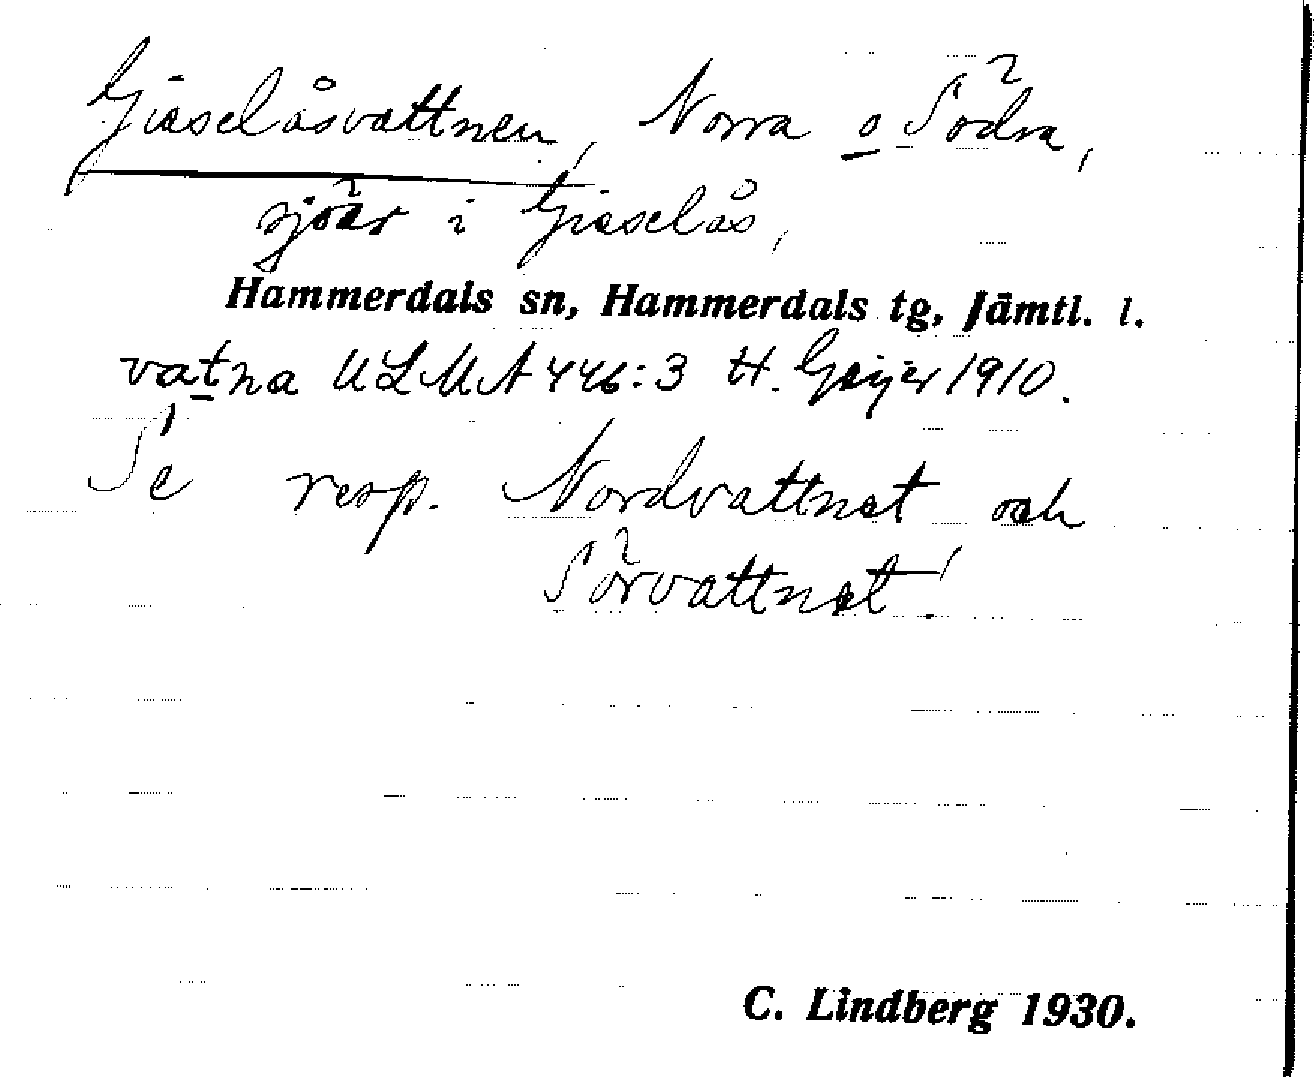 Giaselåsvattnen, Norra o Södra,
sjöar i Giaselås,
Hammerdals sn, Hammerdals tg, Jämtl. l.
vatna ULMA 446:3 H. Geijer 1910.
Se resp. Nordvattnet och
Sörvattnet!
C. Lindberg 1930.